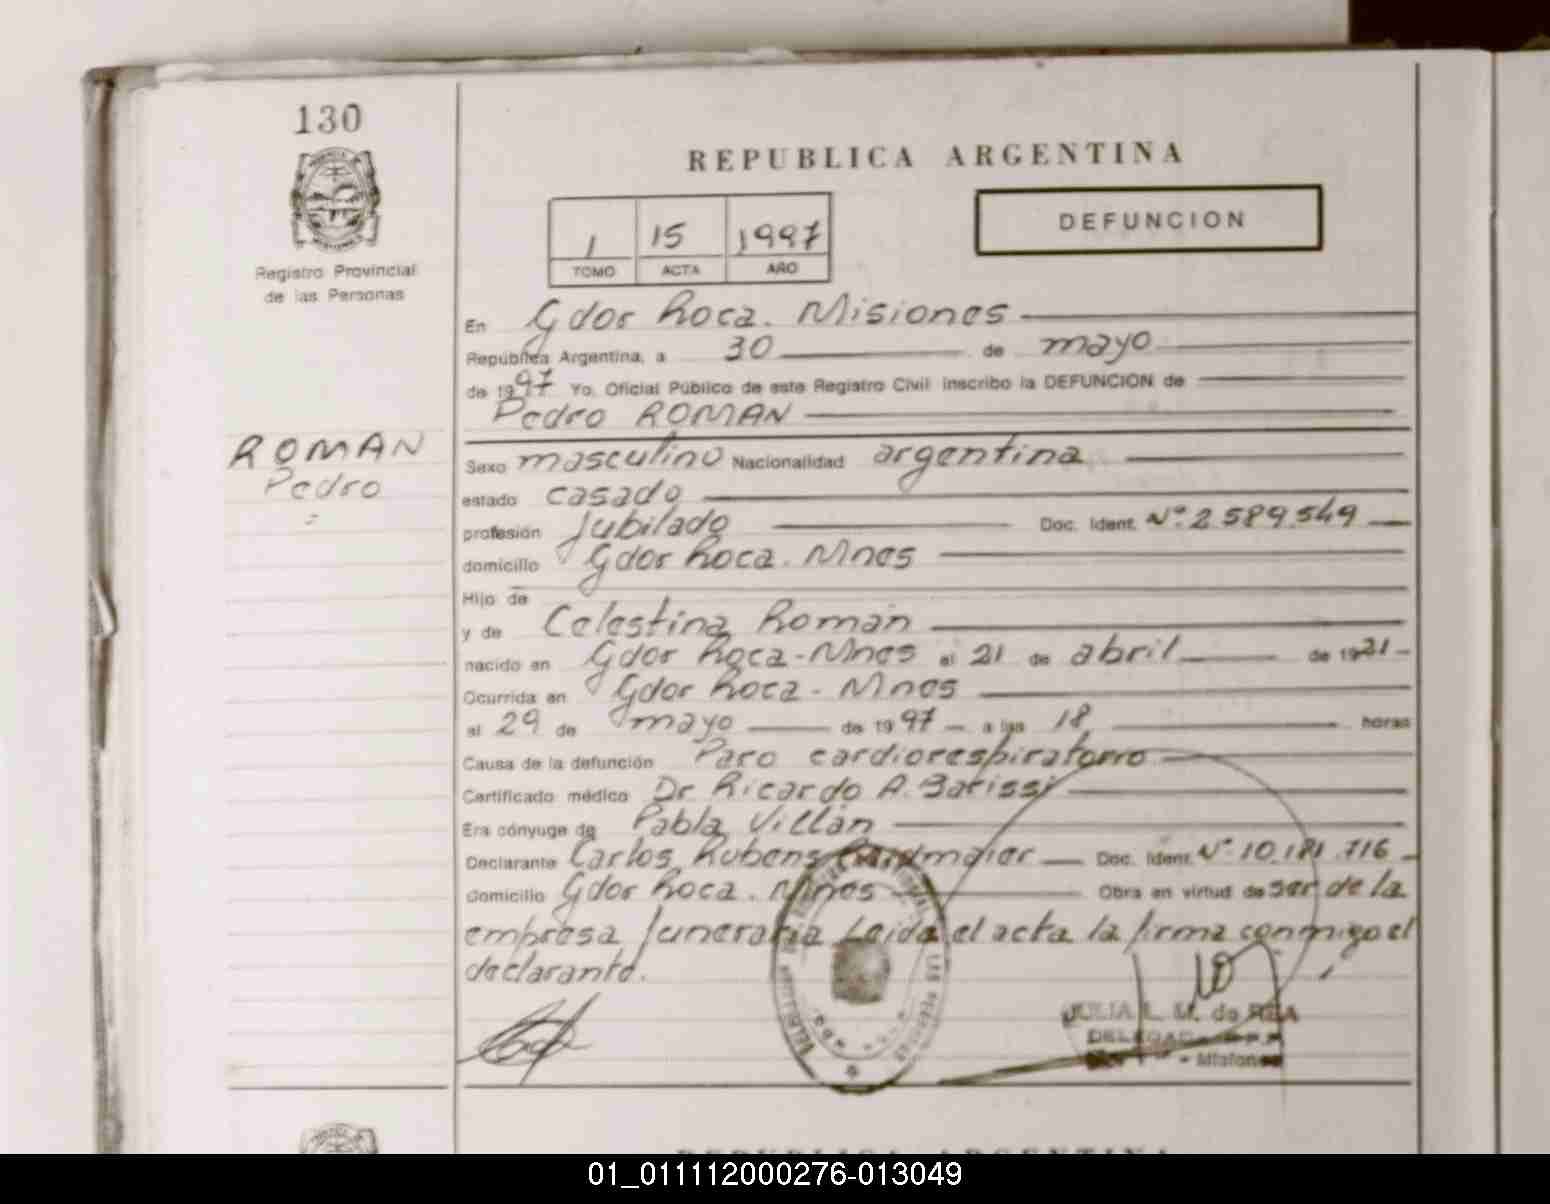 130
Registro Provincial
de las Personas
REPUBLICA ARGENTINA
1 15 1997
TOMO ACTA AÑO
DEFUNCION
En Gdor Roca. Misiones
República Argentina, a 30 de mayo
de 1997 Yo, Oficial Público de este Registro Civil inscribo la DEFUNCION de
Pedro ROMAN
ROMAN
Pedro
Sexo masculino Nacionalidad argentina
estado casado
profesión Jubilado Doc. Ident. Nº. 2 589.549
domicilio Gdor Roca. Mnes
Hijo de
y de Celestina Román
nacido en Gdor Roca-Mnes el 21 de abril de 1921
Ocurrida en Gdor Roca - Mnes
el 29 de mayo de 1997 a las 18 horas
Causa de la defunción Paro cardiorespiratorio
Certificado médico Dr Ricardo A. Barissi
Era cónyuge de Pabla Villán
Declarante Carlos Rubens Doc. Ident. Nº 10.181.716
domicilio Gdor Roca. Mnes Obra en virtud de ser de la
empresa funeraria Leida el acta la firma conmigo el
declarante.
JULIA L. M. de REA
DELEGADA
- Misiones
REPUBLICA ARGENTINA
01_011112000276-013049